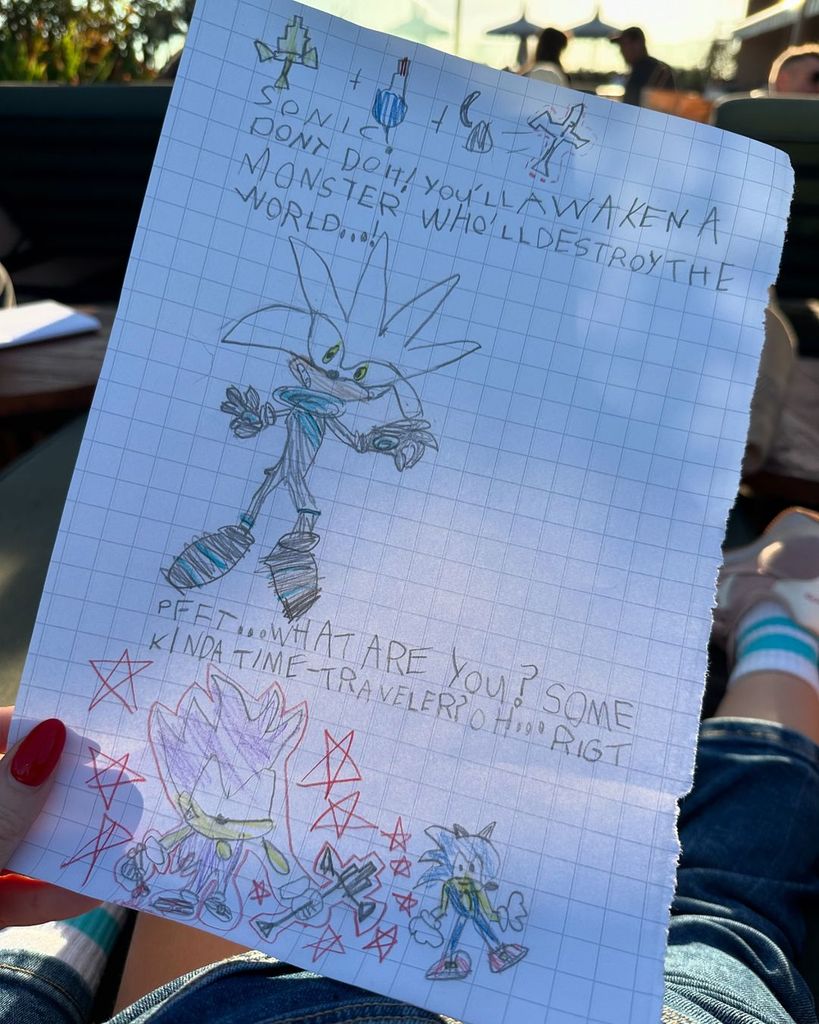 SONIC!
DONT DO IT! YOU'LL AWAKEN A
MONSTER WHO'LL DESTROY THE
WORLD...!
PFFT...WHAT ARE YOU? SOME
KINDA TIME-TRAVELER? OH... RIGT